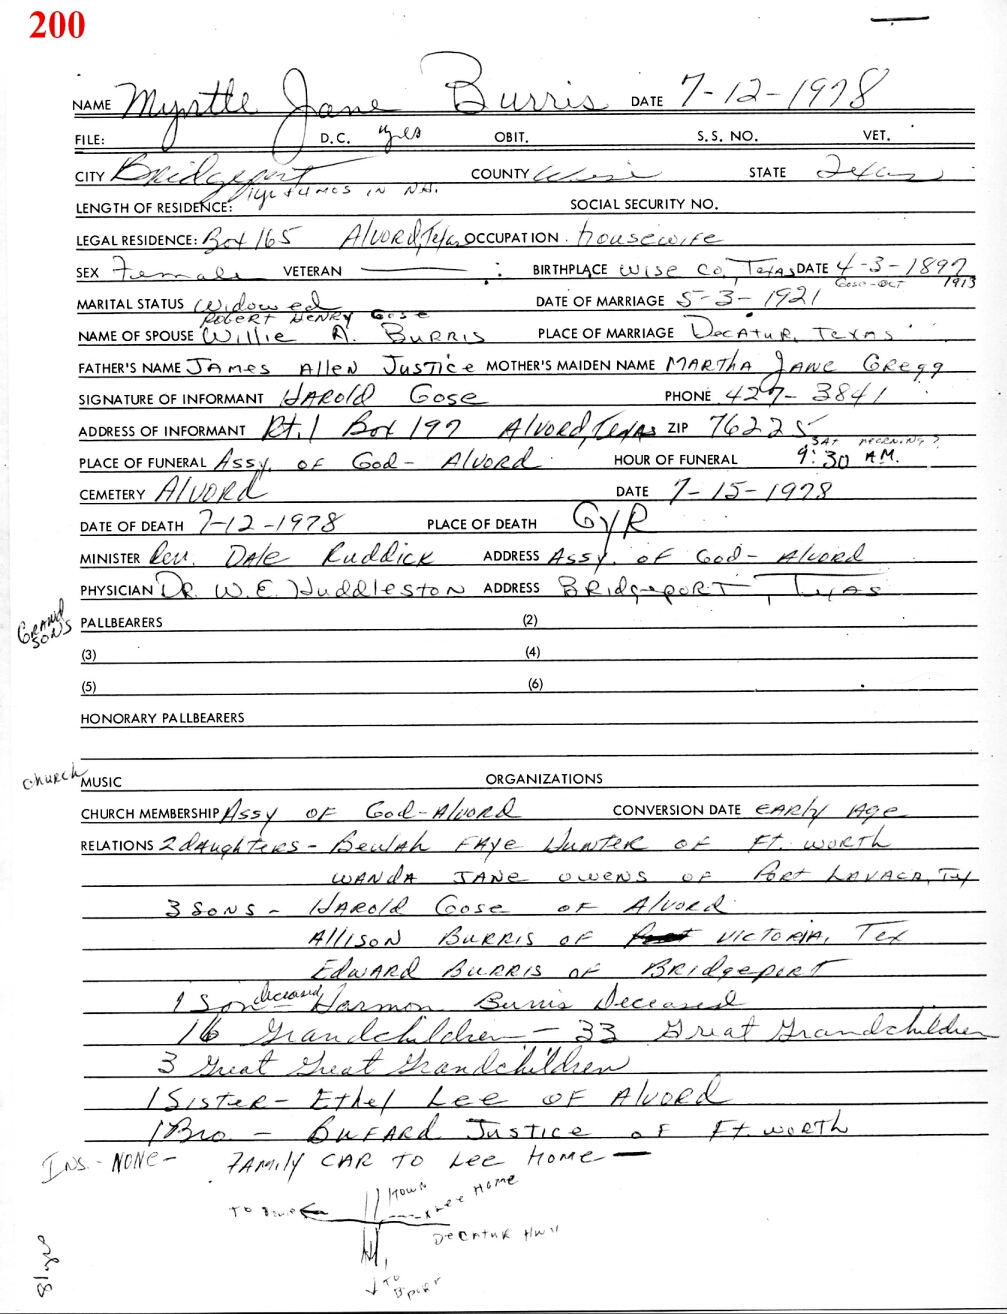 200
NAME Myrtle Jane Burris DATE 7-12-1978
FILE: D.C. yes OBIT. S.S. NO. VET.
CITY Bridgeport COUNTY Wise STATE Texas
LENGTH OF RESIDENCE: 4 mos in N.H. SOCIAL SECURITY NO.
LEGAL RESIDENCE: Box 165 Alvord, Texas OCCUPATION housewife
SEX Female VETERAN BIRTHPLACE Wise Co, Texas DATE 4-3-1897
MARITAL STATUS Widowed DATE OF MARRIAGE 5-3-1921 Gose-Oct 1913
Robert Henry Gose
NAME OF SPOUSE Willie A. Burris PLACE OF MARRIAGE Decatur, Texas
FATHER'S NAME James Allen Justice MOTHER'S MAIDEN NAME Martha Jane Gregg
SIGNATURE OF INFORMANT Harold Gose PHONE 427-3841
ADDRESS OF INFORMANT Rt. 1 Box 197 Alvord, Texas ZIP 76225
Sat morning?
PLACE OF FUNERAL Assy. of God - Alvord HOUR OF FUNERAL 9:30 A.M.
CEMETERY Alvord DATE 7-15-1978
DATE OF DEATH 7-12-1978 PLACE OF DEATH GVR
MINISTER Rev. Dale Ruddick ADDRESS Assy. of God - Alvord
PHYSICIAN Dr. W.E. Huddleston ADDRESS Bridgeport, Texas
Grand Sons PALLBEARERS (2)
(3) (4)
(5) (6)
HONORARY PALLBEARERS
church MUSIC ORGANIZATIONS
CHURCH MEMBERSHIP Assy of God-Alvord CONVERSION DATE early Age
RELATIONS 2 daughters - Beulah Faye Hunter of Ft. Worth
Wanda Jane Owens of Port Lavaca, Tex
3 Sons - Harold Gose of Alvord
Allison Burris of Victoria, Tex
Edward Burris of Bridgeport
1 Son deceased Harmon Burris Deceased
16 Grandchildren - 33 Great Grandchildren
3 Great Great Grandchildren
1 Sister - Ethel Lee of Alvord
1 Bro - Bufard Justice of Ft. Worth
Ins. - None - Family car to Lee Home
Town
Lee Home
To Bowie
Decatur Hwy
To B'port